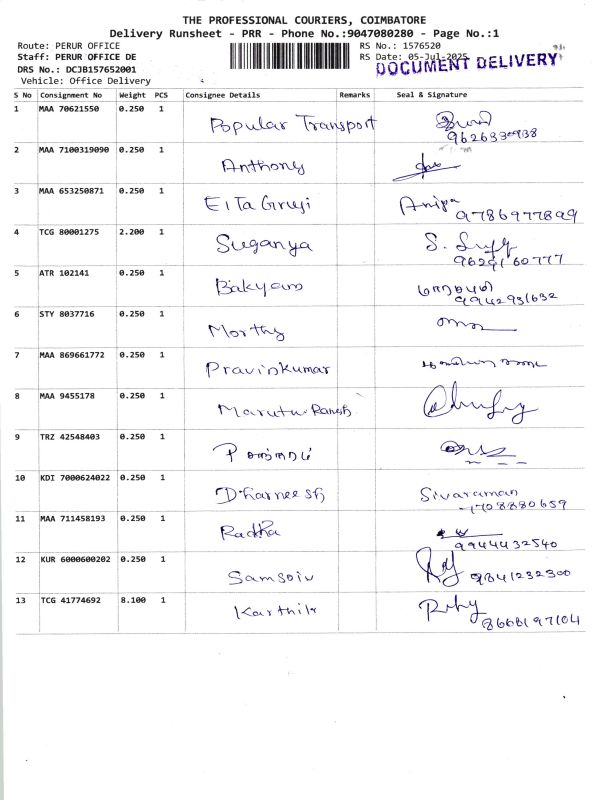 THE PROFESSIONAL COURIERS, COIMBATORE
Delivery Runsheet - PRR - Phone No.:9047080280 - Page No.:1
Route: PERUR OFFICE
RS No.: 1576520
Staff: PERUR OFFICE DE
RS Date: 05-Jul-2025
DOCUMENT DELIVERY
DRS No.: DCJB157652001
Vehicle: Office Delivery
S No Consignment No Weight PCS Consignee Details Remarks Seal & Signature
1 MAA 70621550 0.250 1 Popular Transport
2 MAA 7100319090 0.250 1 Anthony
3 MAA 653250871 0.250 1
9786977899
4 TCG 80001275 2.200 1 Suganya
5 ATR 102141 0.250 1 Bakyam
9942931632
6 STY 8037716 0.250 1 Morthy
7 MAA 869661772 0.250 1 Pravinkumar
8 MAA 9455178 0.250 1
9 TRZ 42548403 0.250 1
10 KDI 7000624022 0.250 1 Dharneesh Sivaraman
11 MAA 711458193 0.250 1 Radha
9944432540
12 KUR 6000600202 0.250 1
9841232300
13 TCG 41774692 8.100 1 Karthik
8668197104